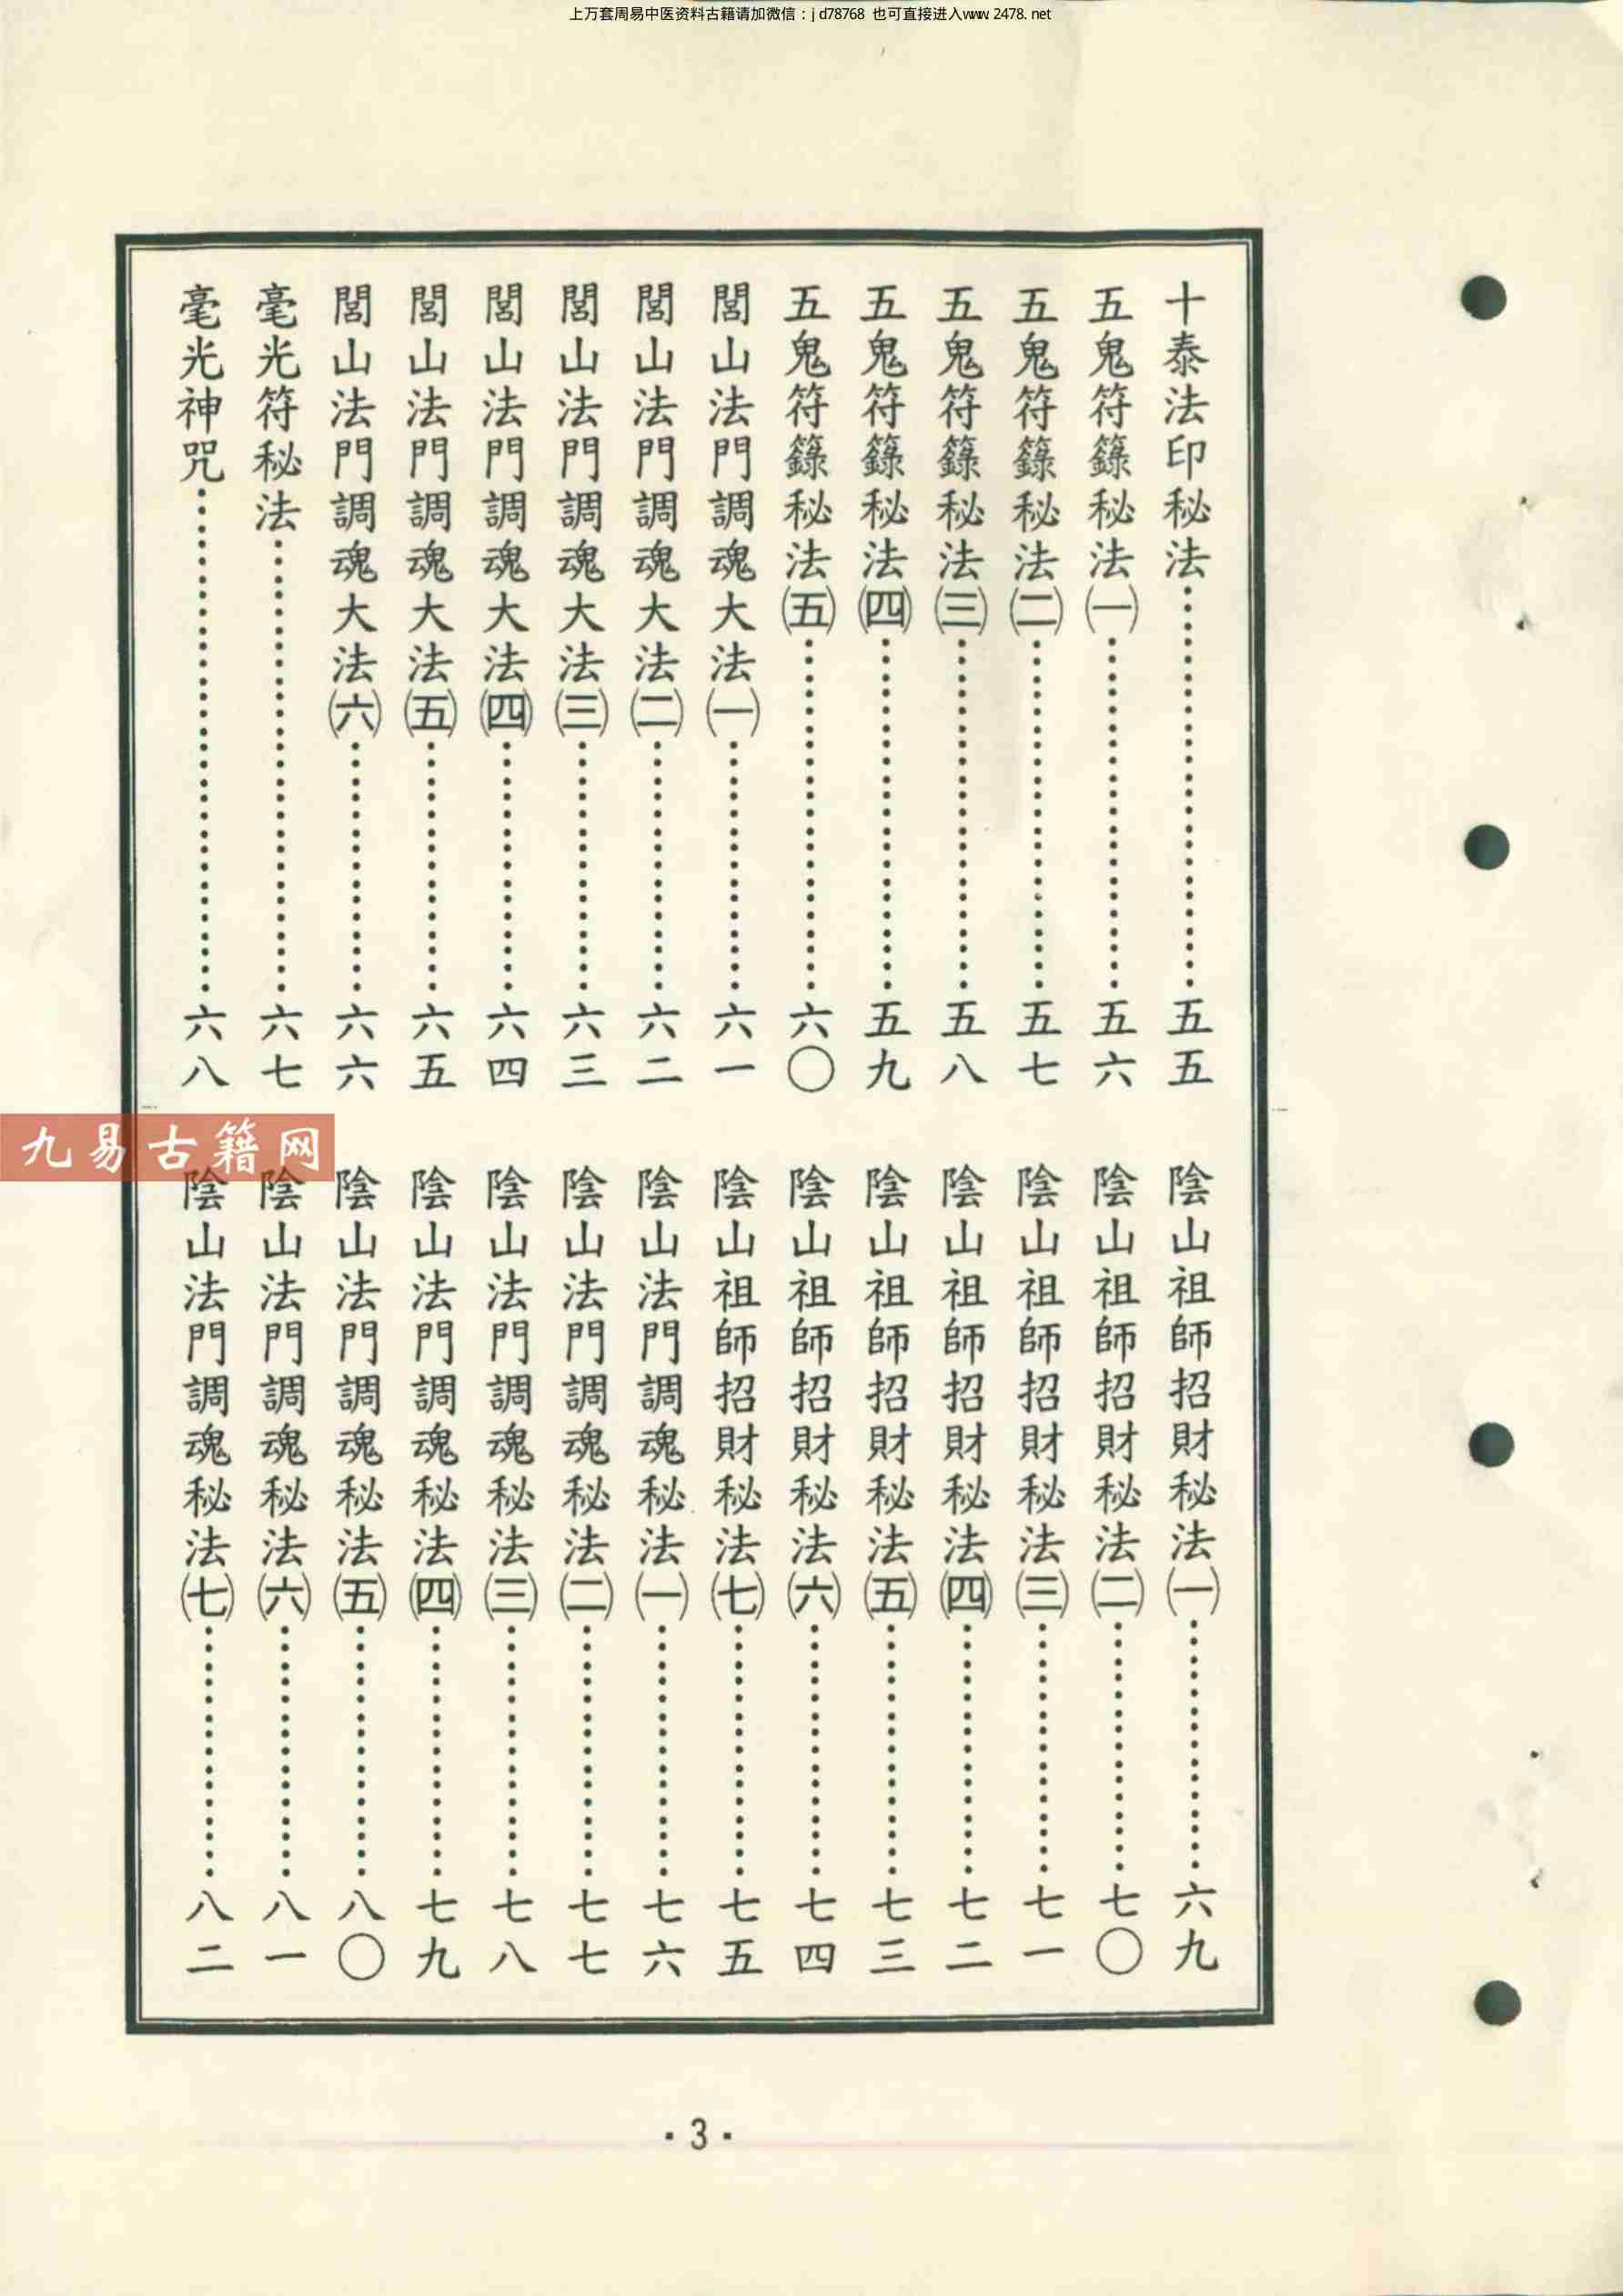 上万套周易中医资料古籍请加微信：jd78768 也可直接进入www.2478.net
十泰法印秘法……五五
五鬼符籙秘法㈠……五六
五鬼符籙秘法㈡……五七
五鬼符籙秘法㈢……五八
五鬼符籙秘法㈣……五九
五鬼符籙秘法㈤……六〇
閭山法門調魂大法㈠……六一
閭山法門調魂大法㈡……六二
閭山法門調魂大法㈢……六三
閭山法門調魂大法㈣……六四
閭山法門調魂大法㈤……六五
閭山法門調魂大法㈥……六六
毫光符秘法……六七
毫光神咒……六八
陰山祖師招財秘法㈠……六九
陰山祖師招財秘法㈡……七〇
陰山祖師招財秘法㈢……七一
陰山祖師招財秘法㈣……七二
陰山祖師招財秘法㈤……七三
陰山祖師招財秘法㈥……七四
陰山祖師招財秘法㈦……七五
陰山法門調魂秘法㈠……七六
陰山法門調魂秘法㈡……七七
陰山法門調魂秘法㈢……七八
陰山法門調魂秘法㈣……七九
陰山法門調魂秘法㈤……八〇
陰山法門調魂秘法㈥……八一
陰山法門調魂秘法㈦……八二
九易古籍网
·3·